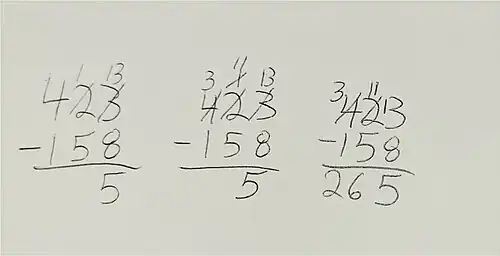 1 13
423
-158
5
11
3 1 13
423
-158
5
3 11
4213
-158
265